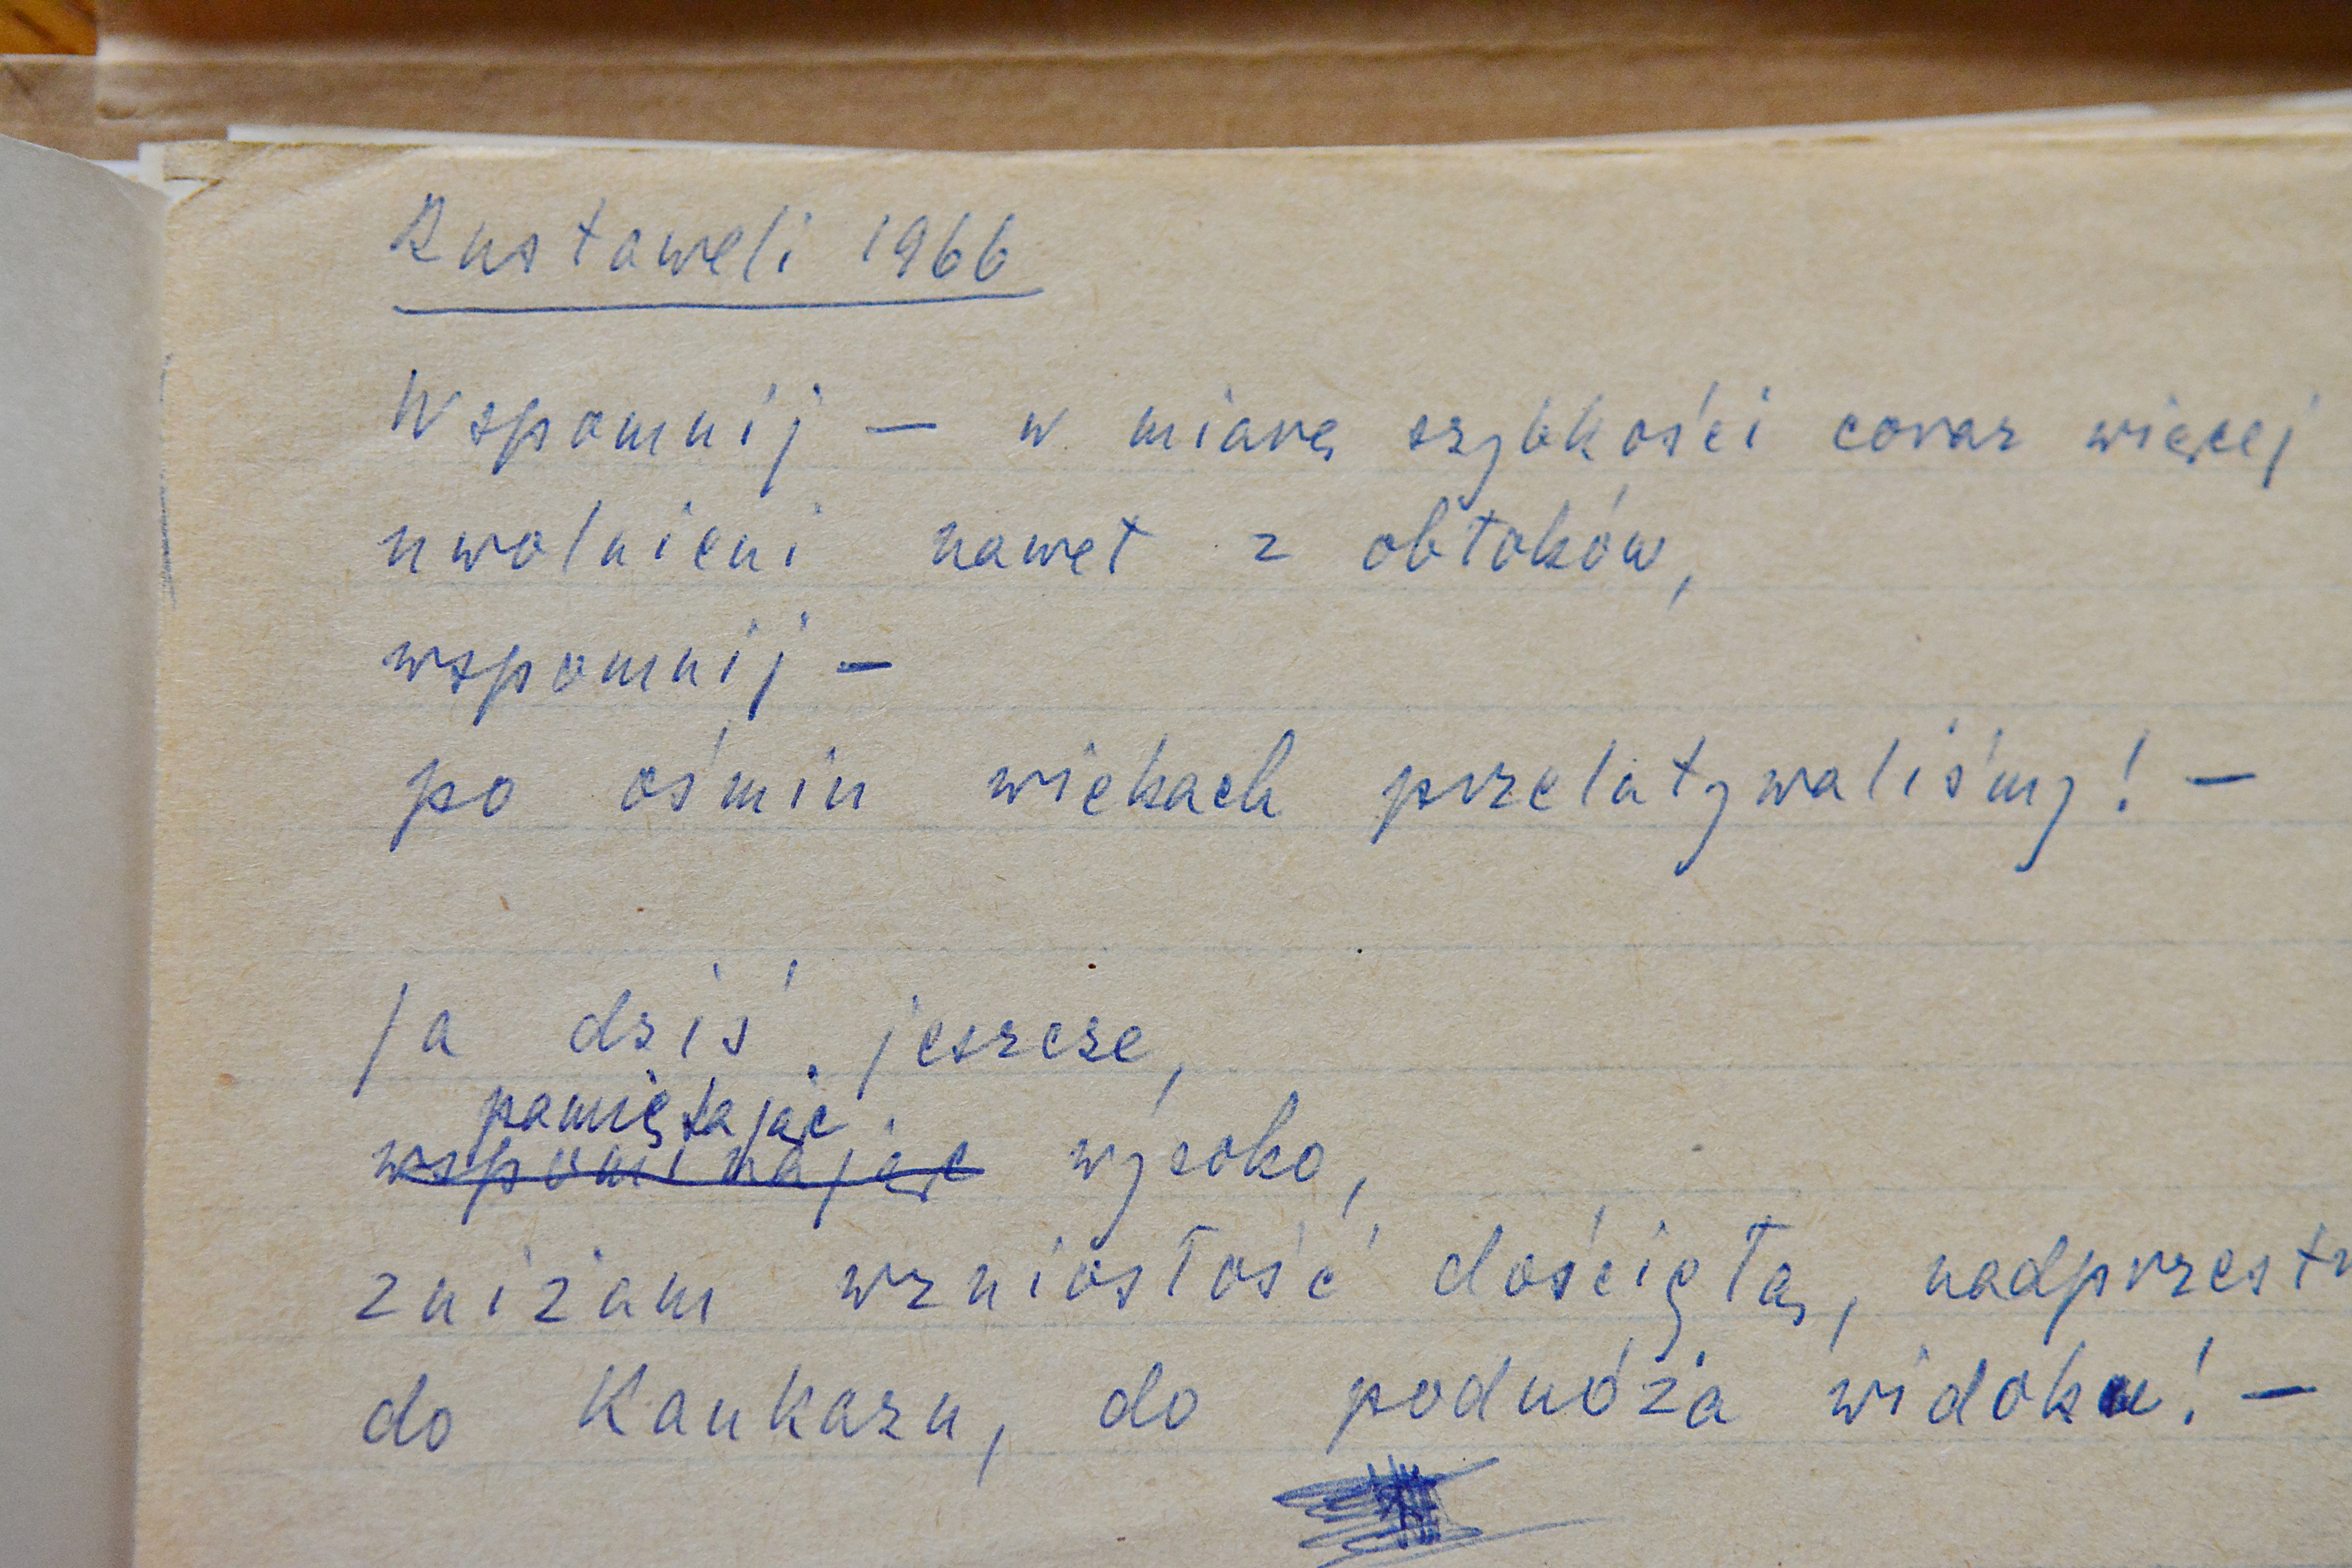 Rustaweli 1966
Wspomnij — w miarę szybkości coraz więcej
uwolnieni nawet z obłoków,
wspomnij —
po ośmiu wiekach przelatywaliśmy! —
Ja dziś jeszcze,
pamiętając
wspominając wysoko,
zniżam wzniosłość dościgłą, nadprzestr
do Kaukazu, do podnóża widoku! —